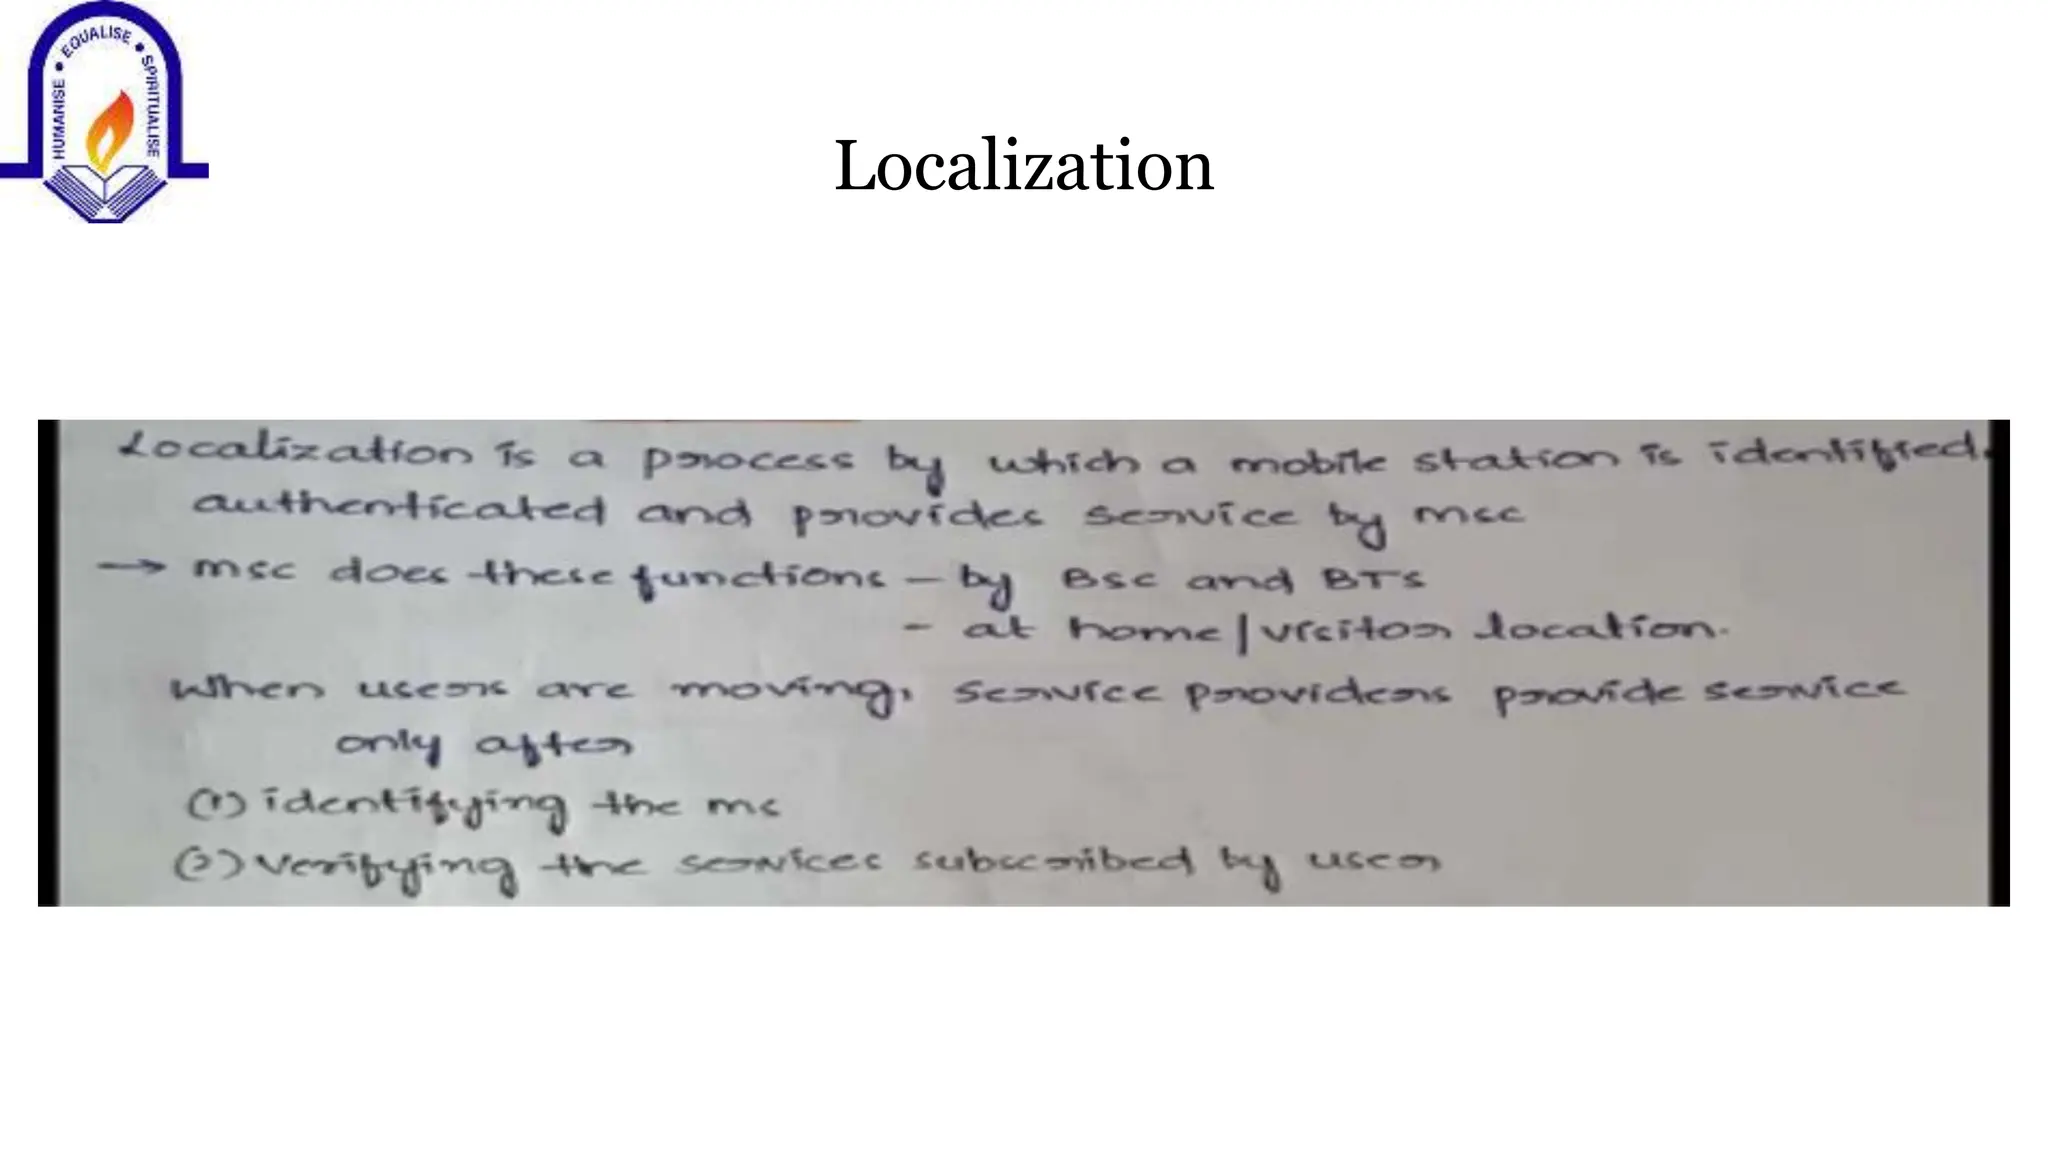 HUMANISE • EQUALISE • SPIRITUALISE
Localization
Localization is a process by which a mobile station is identified,
authenticated and provides service by msc
→ msc does these functions – by BSC and BTS
- at home/visitor location.
When users are moving, service providers provide service
only after
(1) identifying the ms
(2) verifying the services subscribed by user